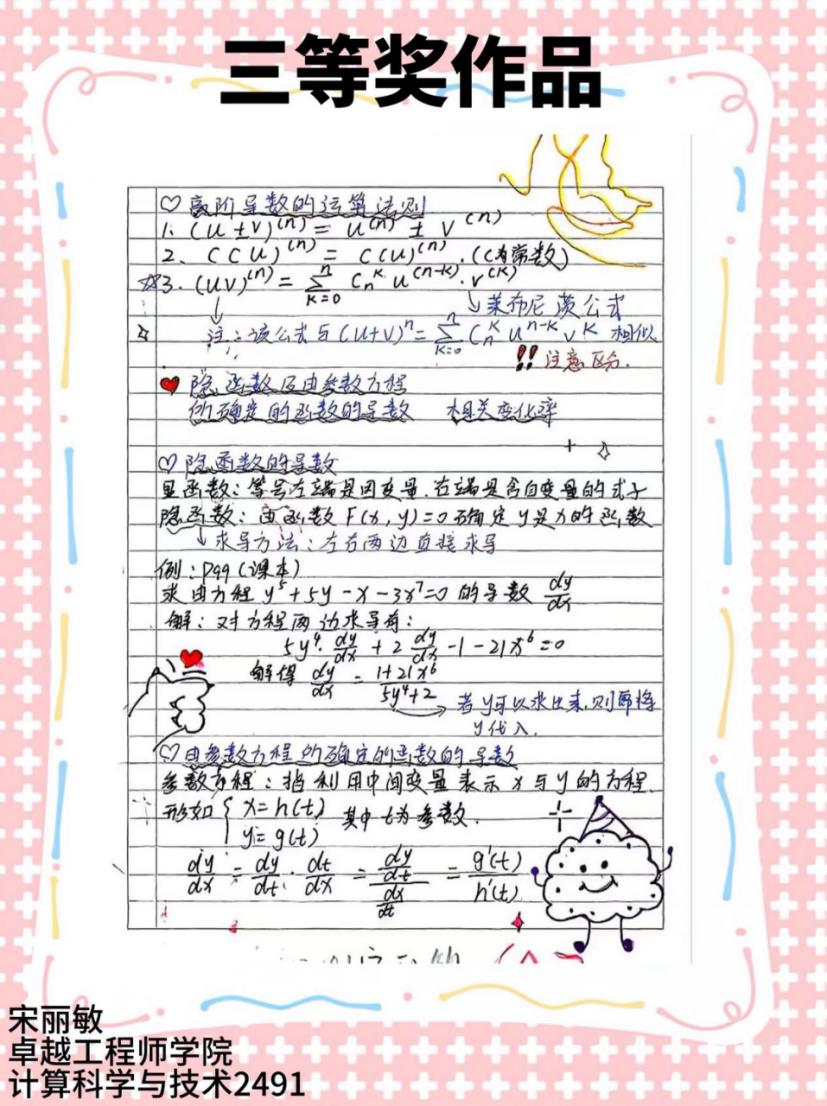 三等奖作品
♡ 高阶导数的运算法则
1. (u±v)⁽ⁿ⁾ = u⁽ⁿ⁾ ± v⁽ⁿ⁾
2. (Cu)⁽ⁿ⁾ = C(u)⁽ⁿ⁾. (C为常数)
☆3. (uv)⁽ⁿ⁾ = Σₖ₌₀ⁿ Cₙᵏ u⁽ⁿ⁻ᵏ⁾·v⁽ᵏ⁾
↘莱布尼茨公式
注:该公式与(u+v)ⁿ = Σₖ₌₀ⁿ Cₙᵏ uⁿ⁻ᵏ vᵏ 相似
!! 注意区分.
♥ 隐函数及由参数方程
所确定的函数的导数 相关变化率
♡ 隐函数的导数
显函数:等号左端是因变量.右端是含自变量的式子
隐函数:由函数F(x,y)=0确定y是x的函数
↳求导方法:左右两边直接求导
例:P99(课本)
求由方程 y⁵+5y-x-3x⁷=0 的导数 dy/dx
解:对方程两边求导有:
5y⁴·dy/dx + 2 dy/dx -1-21x⁶=0
解得 dy/dx = (1+21x⁶)/(5y⁴+2)
→ 若y可以求出来,则需将
y代入.
♡ 由参数方程所确定的函数的导数
参数方程:指利用中间变量表示x与y的方程.
形如 { x=h(t)
y=g(t) 其中t为参数.
dy/dx = dy/dt · dt/dx = (dy/dt)/(dx/dt) = g'(t)/h'(t)
宋丽敏
卓越工程师学院
计算科学与技术2491